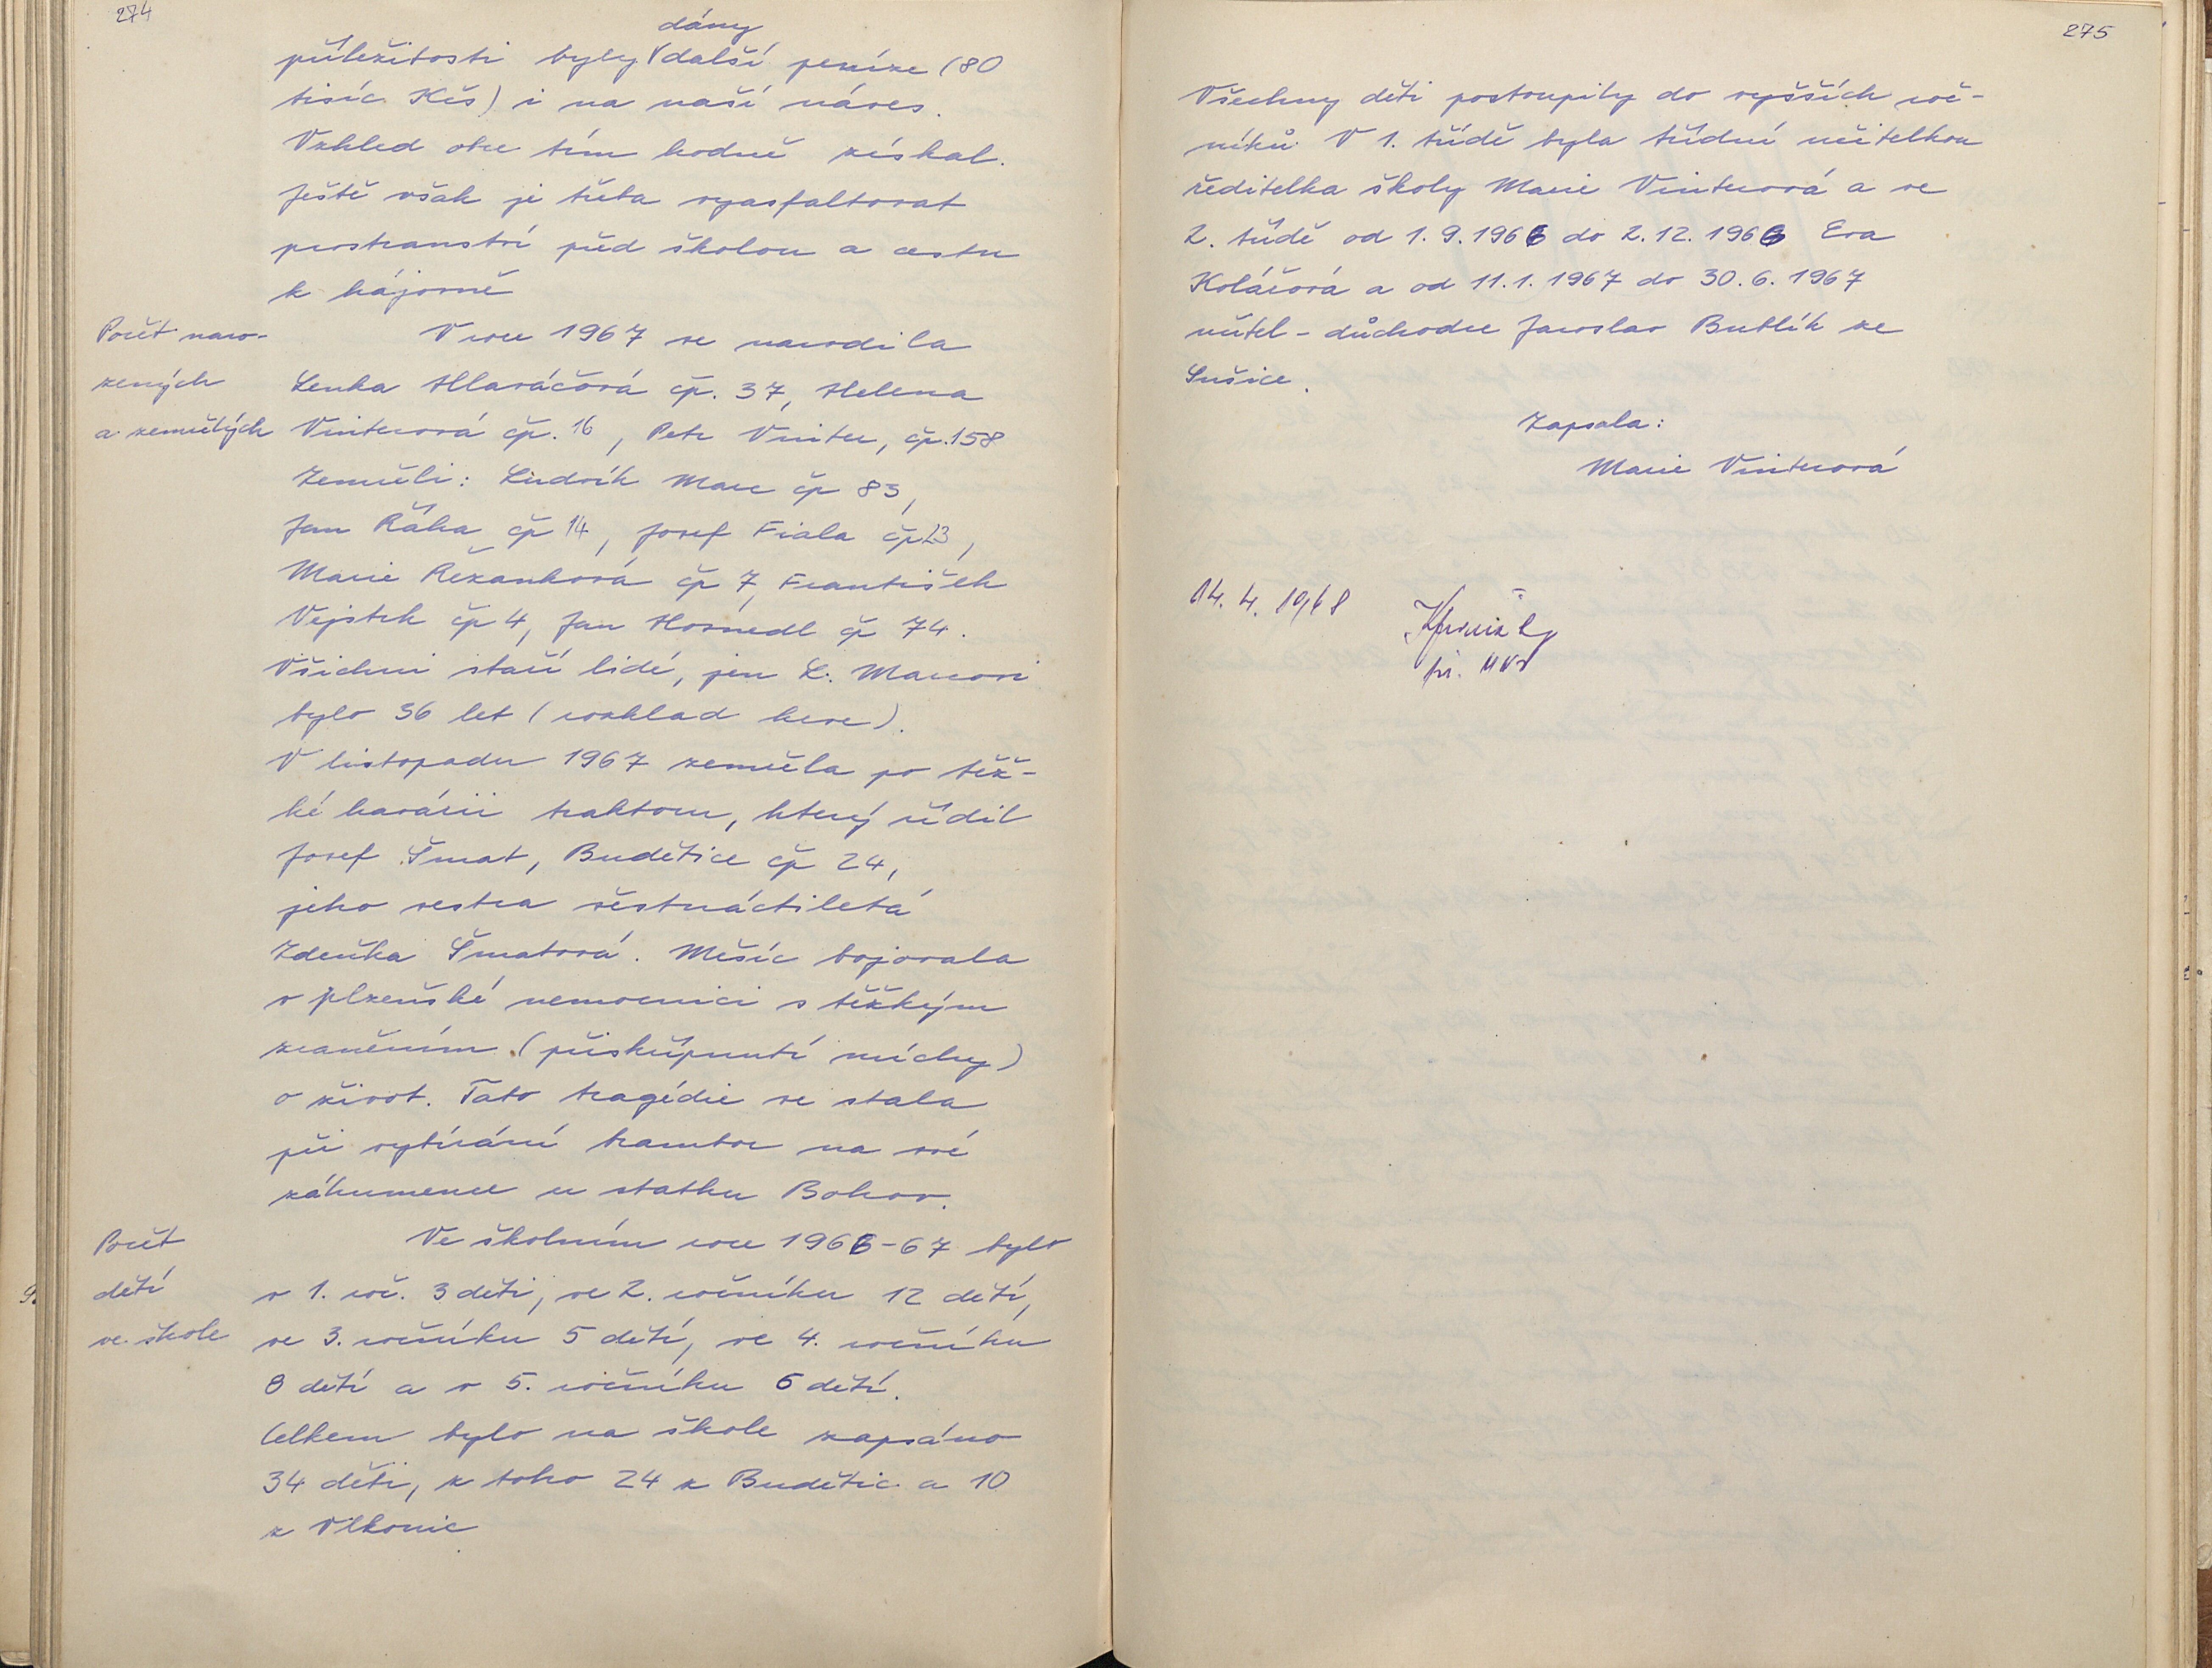 274
dány
příležitosti byly další peníze (80
tisíc Kčs) i na naší náves.
Vzhled obce tím hodně získal.
Ještě však je třeba vyasfaltovat
prostranství před školou a cestu
k hájovně
Počet naro-
zených
a zemřelých
V roce 1967 se narodila
Lenka Hlaváčová čp. 37, Helena
Vinterová čp. 16, Petr Vinter, čp. 158
Zemřeli: Ludvík Marc čp 83,
Jan Řáha čp 14, Josef Fiala čp 23,
Marie Řezanková čp 7, František
Vejstrk čp 4, Jan Hosnedl čp 74.
Všichni staří lidé, jen L. Marcovi
bylo 36 let (rozklad krve).
V listopadu 1967 zemřela po těž-
ké havárii traktoru, který řídil
Josef Šmat, Budětice čp 24,
jeho sestra šestnáctiletá
Zdeňka Šmatová. Měsíc bojovala
v plzeňské nemocnici s těžkým
zraněním (přiskřípnutí míchy)
o život. Tato tragédie se stala
při vytírání brambor na své
záhumence u statku Bohov.
Počet
dětí
ve škole
Ve školním roce 1966-67 bylo
v 1. roč. 3 děti, ve 2. ročníku 12 dětí,
ve 3. ročníku 5 dětí, ve 4. ročníku
8 dětí a v 5. ročníku 6 dětí.
Celkem bylo na škole zapsáno
34 děti, z toho 24 z Budětic a 10
z Vlkonic
275
Všechny děti postoupily do vyšších roč-
níků. V 1. třídě byla třídní učitelkou
ředitelka školy Marie Vinterová a ve
2. třídě od 1.9.1966 do 2.12.1966 Eva
Kolářová a od 11.1.1967 do 30.6.1967
učitel-důchodce Jaroslav Bublík ze
Sušice.
Zapsala:
Marie Vinterová
14. 4. 1968
př. MNV